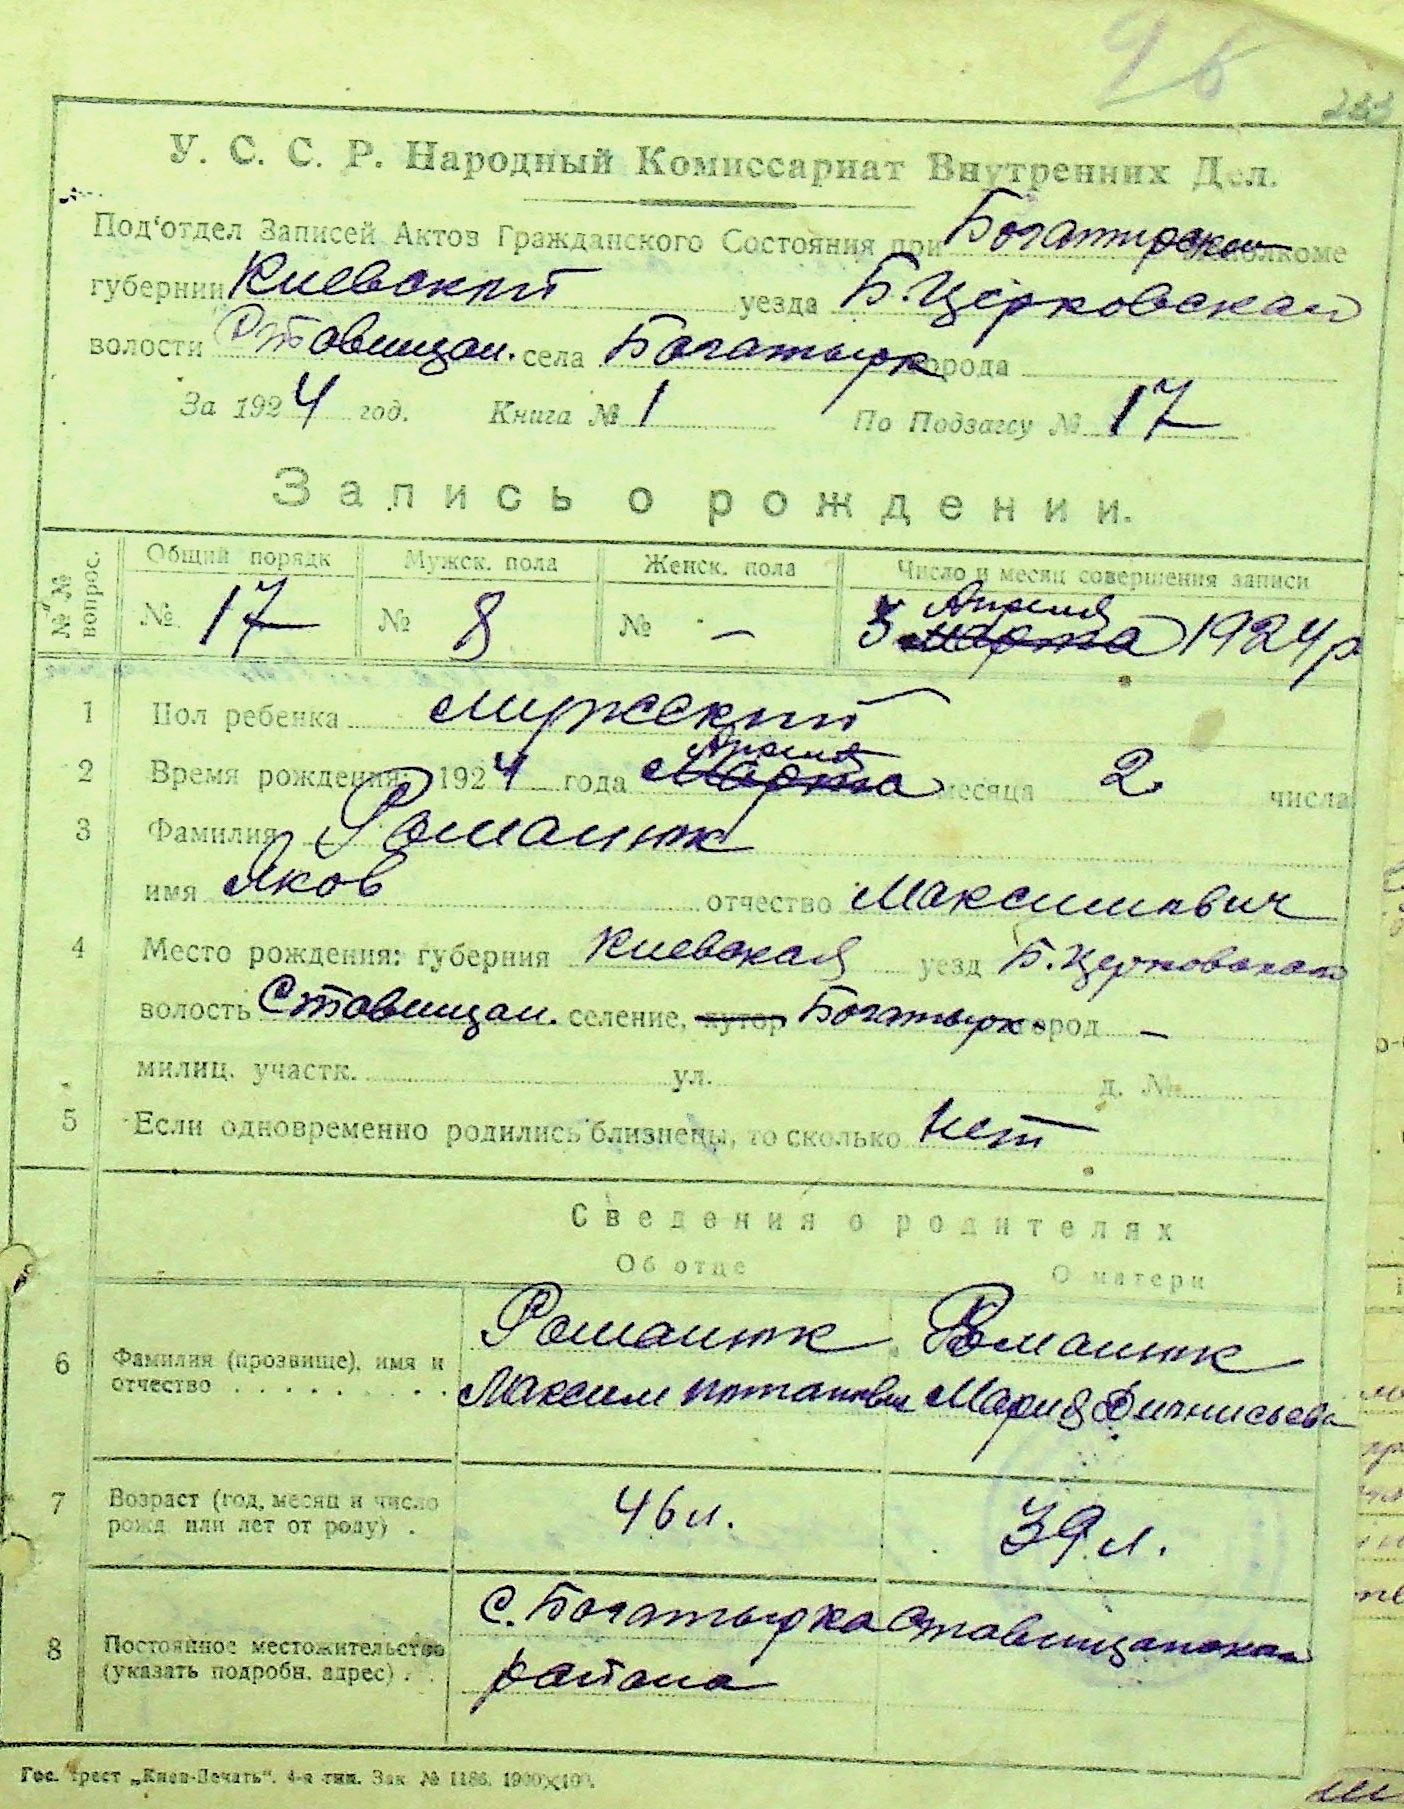 96
233
У. С. С. Р. Народный Комиссариат Внутренних Дел.
Под'отдел Записей Актов Гражданского Состояния при Богатирском исполкоме
губернии Киевской уезда Б. Церковская
волости Ставищан. села Богатырк города
За 1924 год. Книга № 1 По Подзагсу № 17
Запись о рождении.
№№ вопрос. Общий порядк Мужск. пола Женск. пола Число и месяц совершения записи
Апреля
№ 17 № 8 № — 3 Марта 1924 р
1 Пол ребенка мужеский
Апреля
2 Время рождения: 1924 года Марта месяца 2 числа
3 Фамилия Романюк
имя Яков отчество Максимович
4 Место рождения: губерния Киевская уезд Б. Церковская
волость Ставищан. селение, хутор Богатырк город —
милиц. участк. ул. д. №
5 Если одновременно родились близнецы, то сколько нет
Сведения о родителях
Об отце О матери
Романюк Романюк
6 Фамилия (прозвище), имя и
отчество Максим Мария
7 Возраст (год, месяц и число
рожд. или лет от роду) . 46 л. 39 л.
с. Богатырка Ставищанского
8 Постоянное местожительство
(указать подробн. адрес) . района
Гос. трест „Киев-Печать". 4-я тип. Зак № 1186.